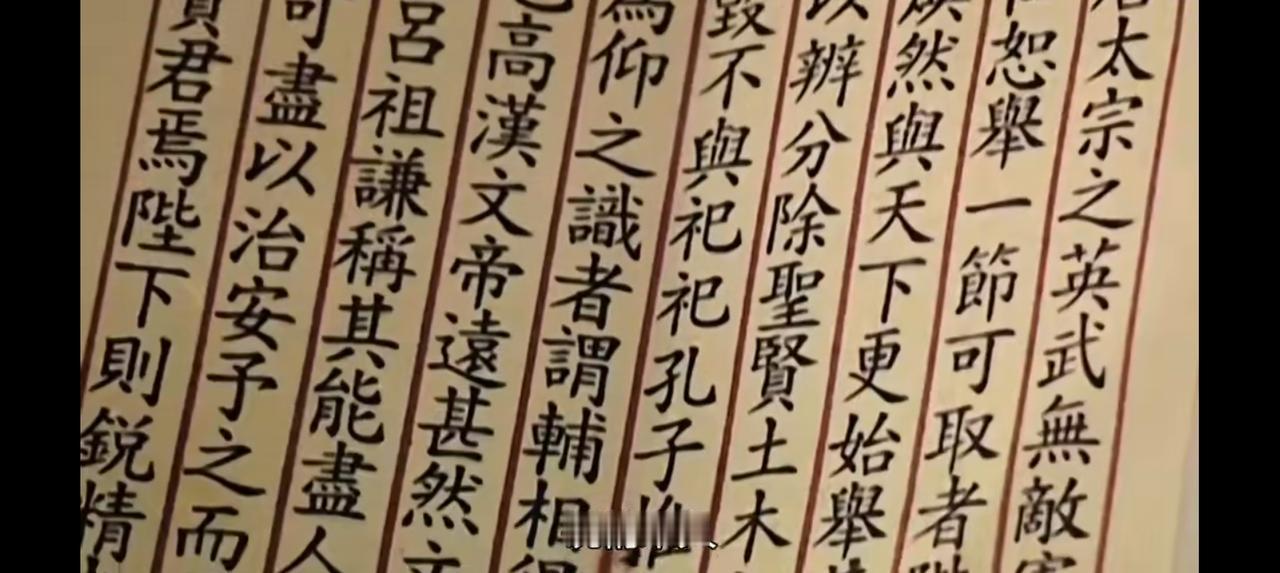 太宗之英武無敵
恕舉一節可取者
然與天下更始舉
以辨分除聖賢土木
毀不與祀祀孔子推
為仰之識者謂輔相
高漢文帝遠甚然文
呂祖謙稱其能盡人
可盡以治安予之而
君焉陛下則銳精